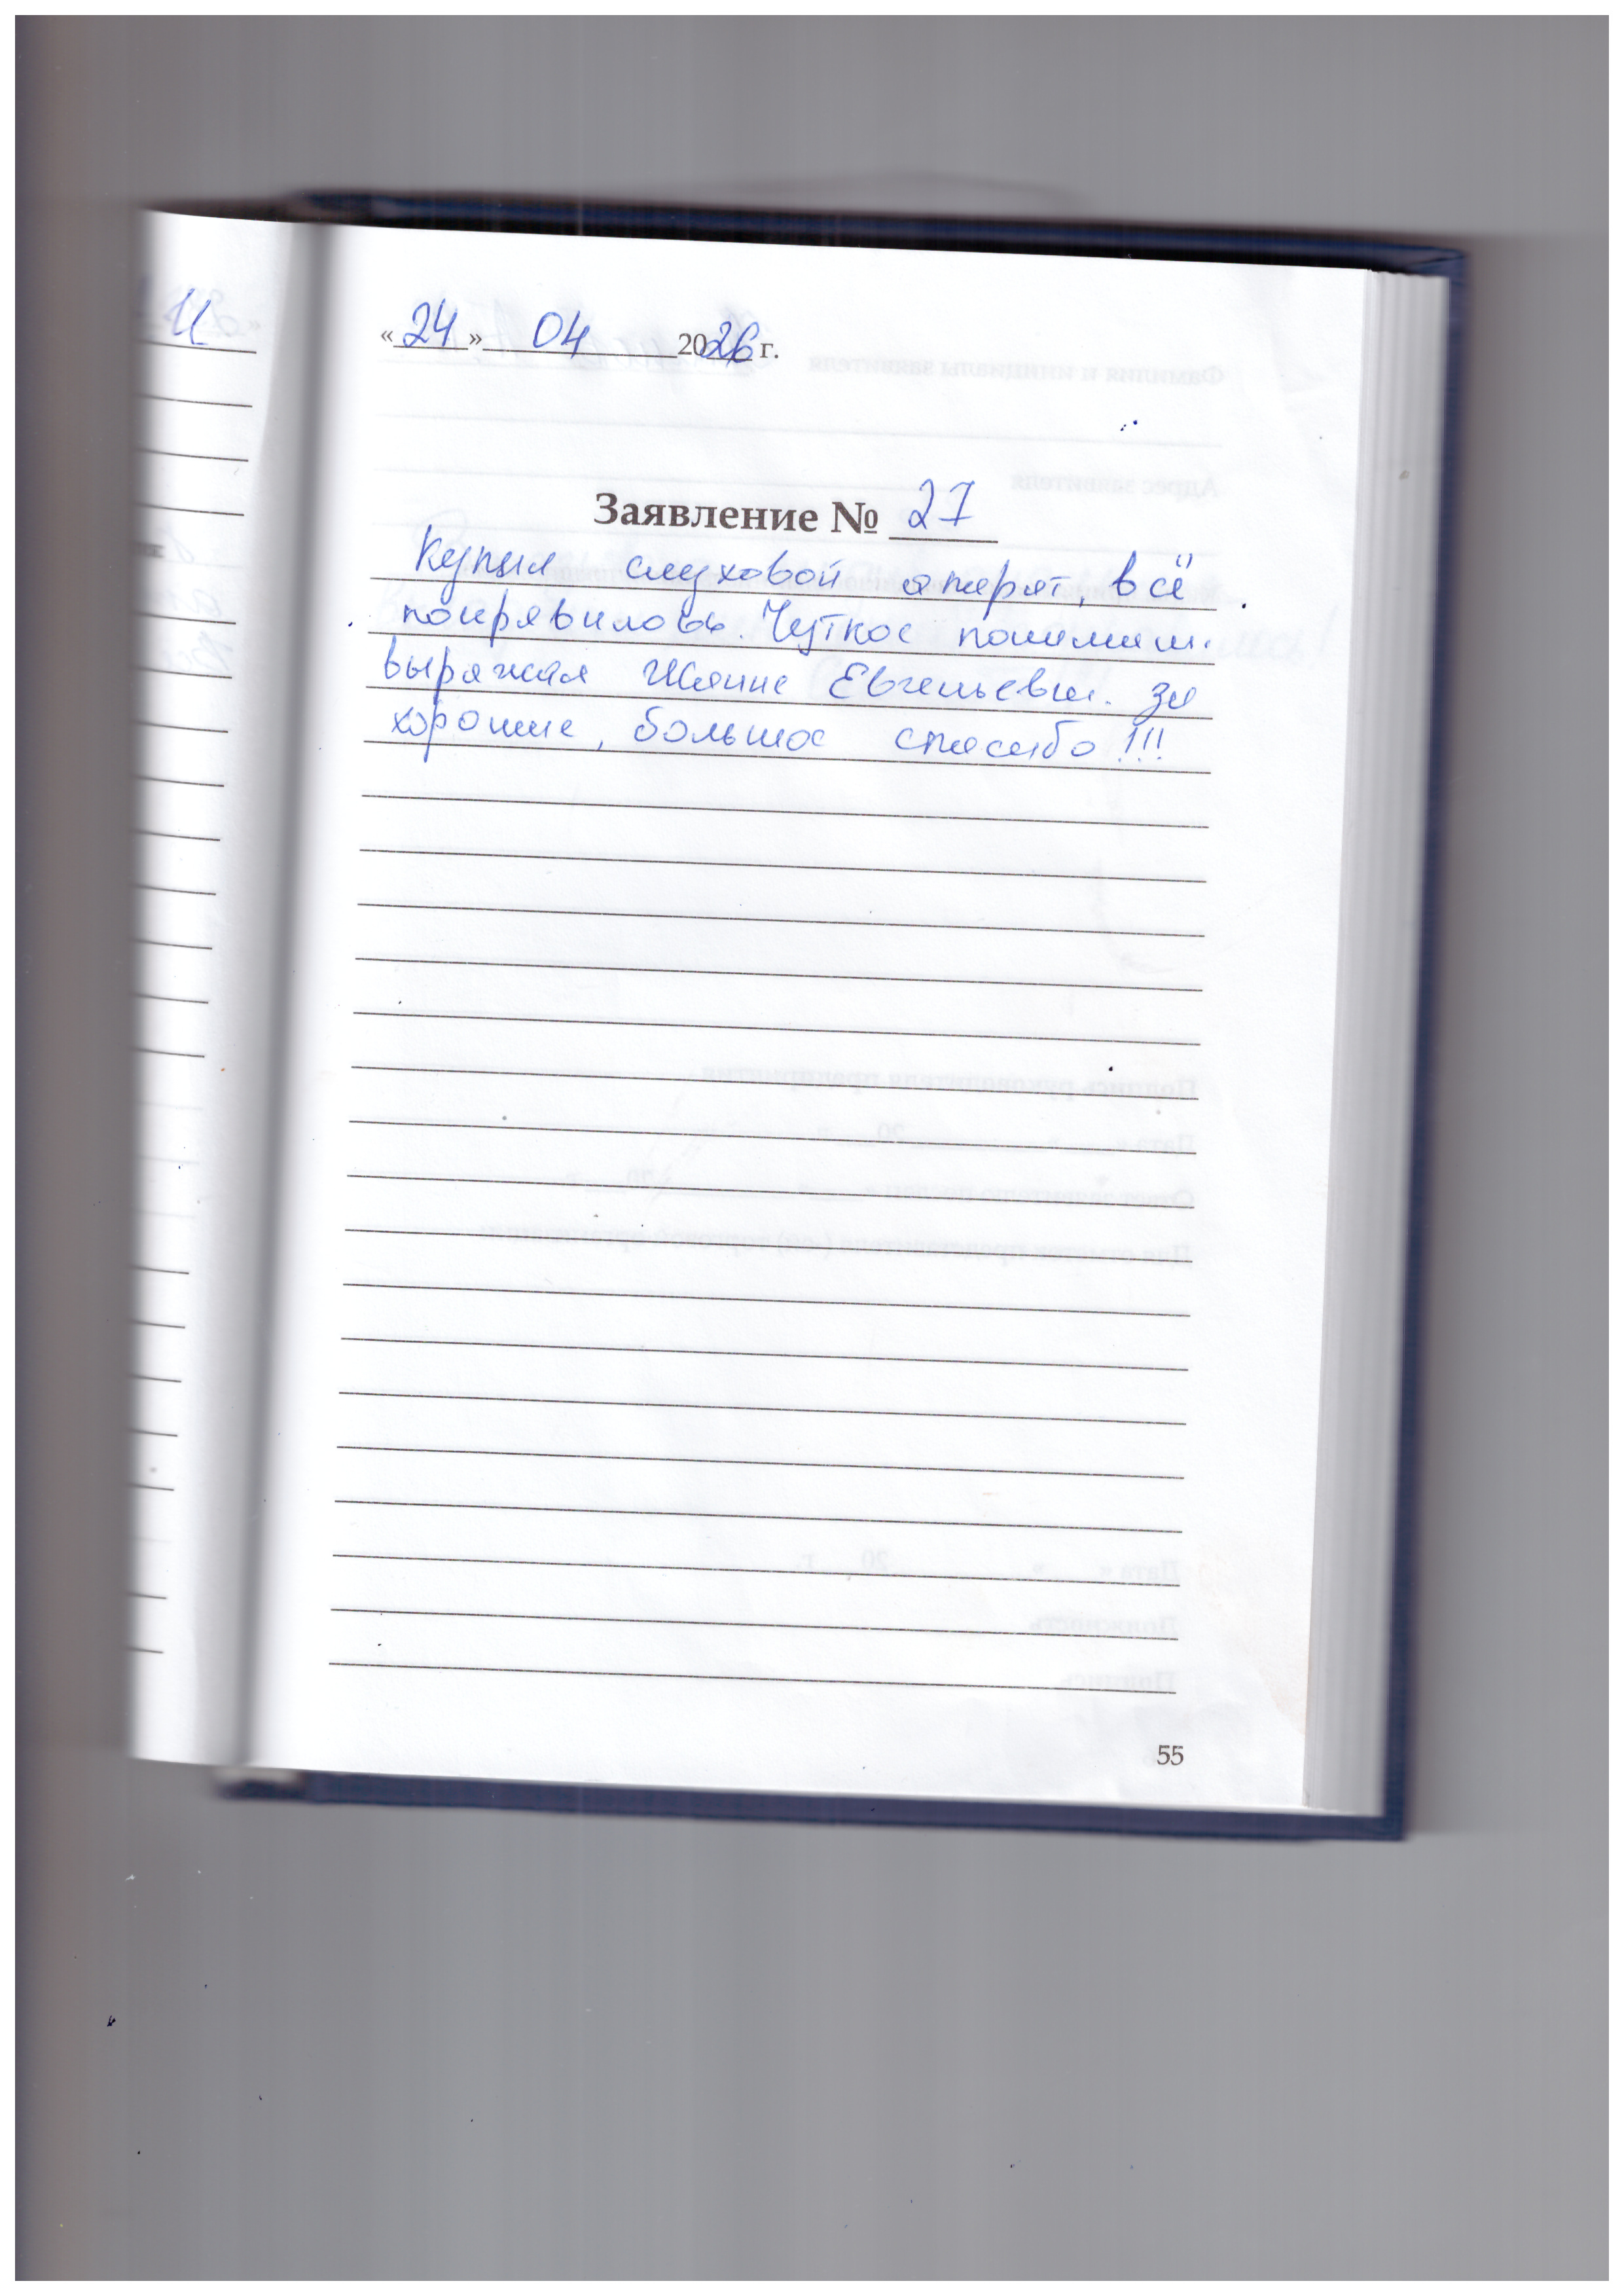 и
«24» 04 2026 г.
Заявление № 27
Купил слуховой апарат, всё
понравилось. Чуткое понимани.
выражал Жанне Евгеньевн. за
хорошие, большое спасибо!!!
55